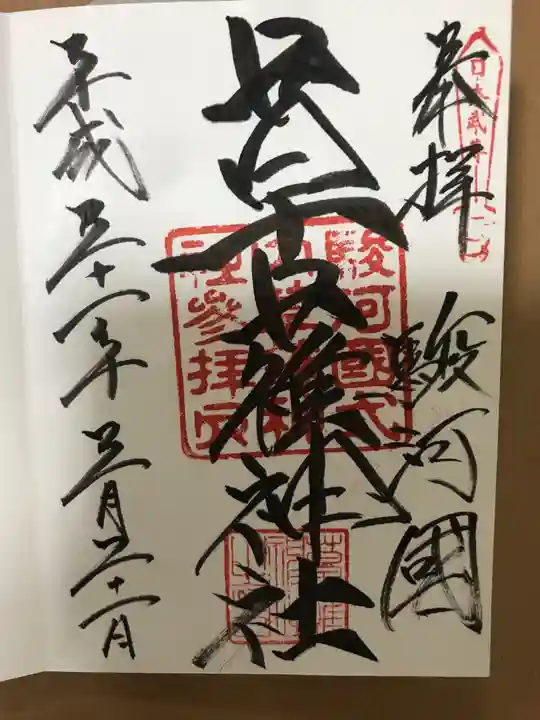 奉拝
駿河國
日本武尊
草薙神社
駿河國式
内草薙神
社參拝印
平成三十一年三月三十一日